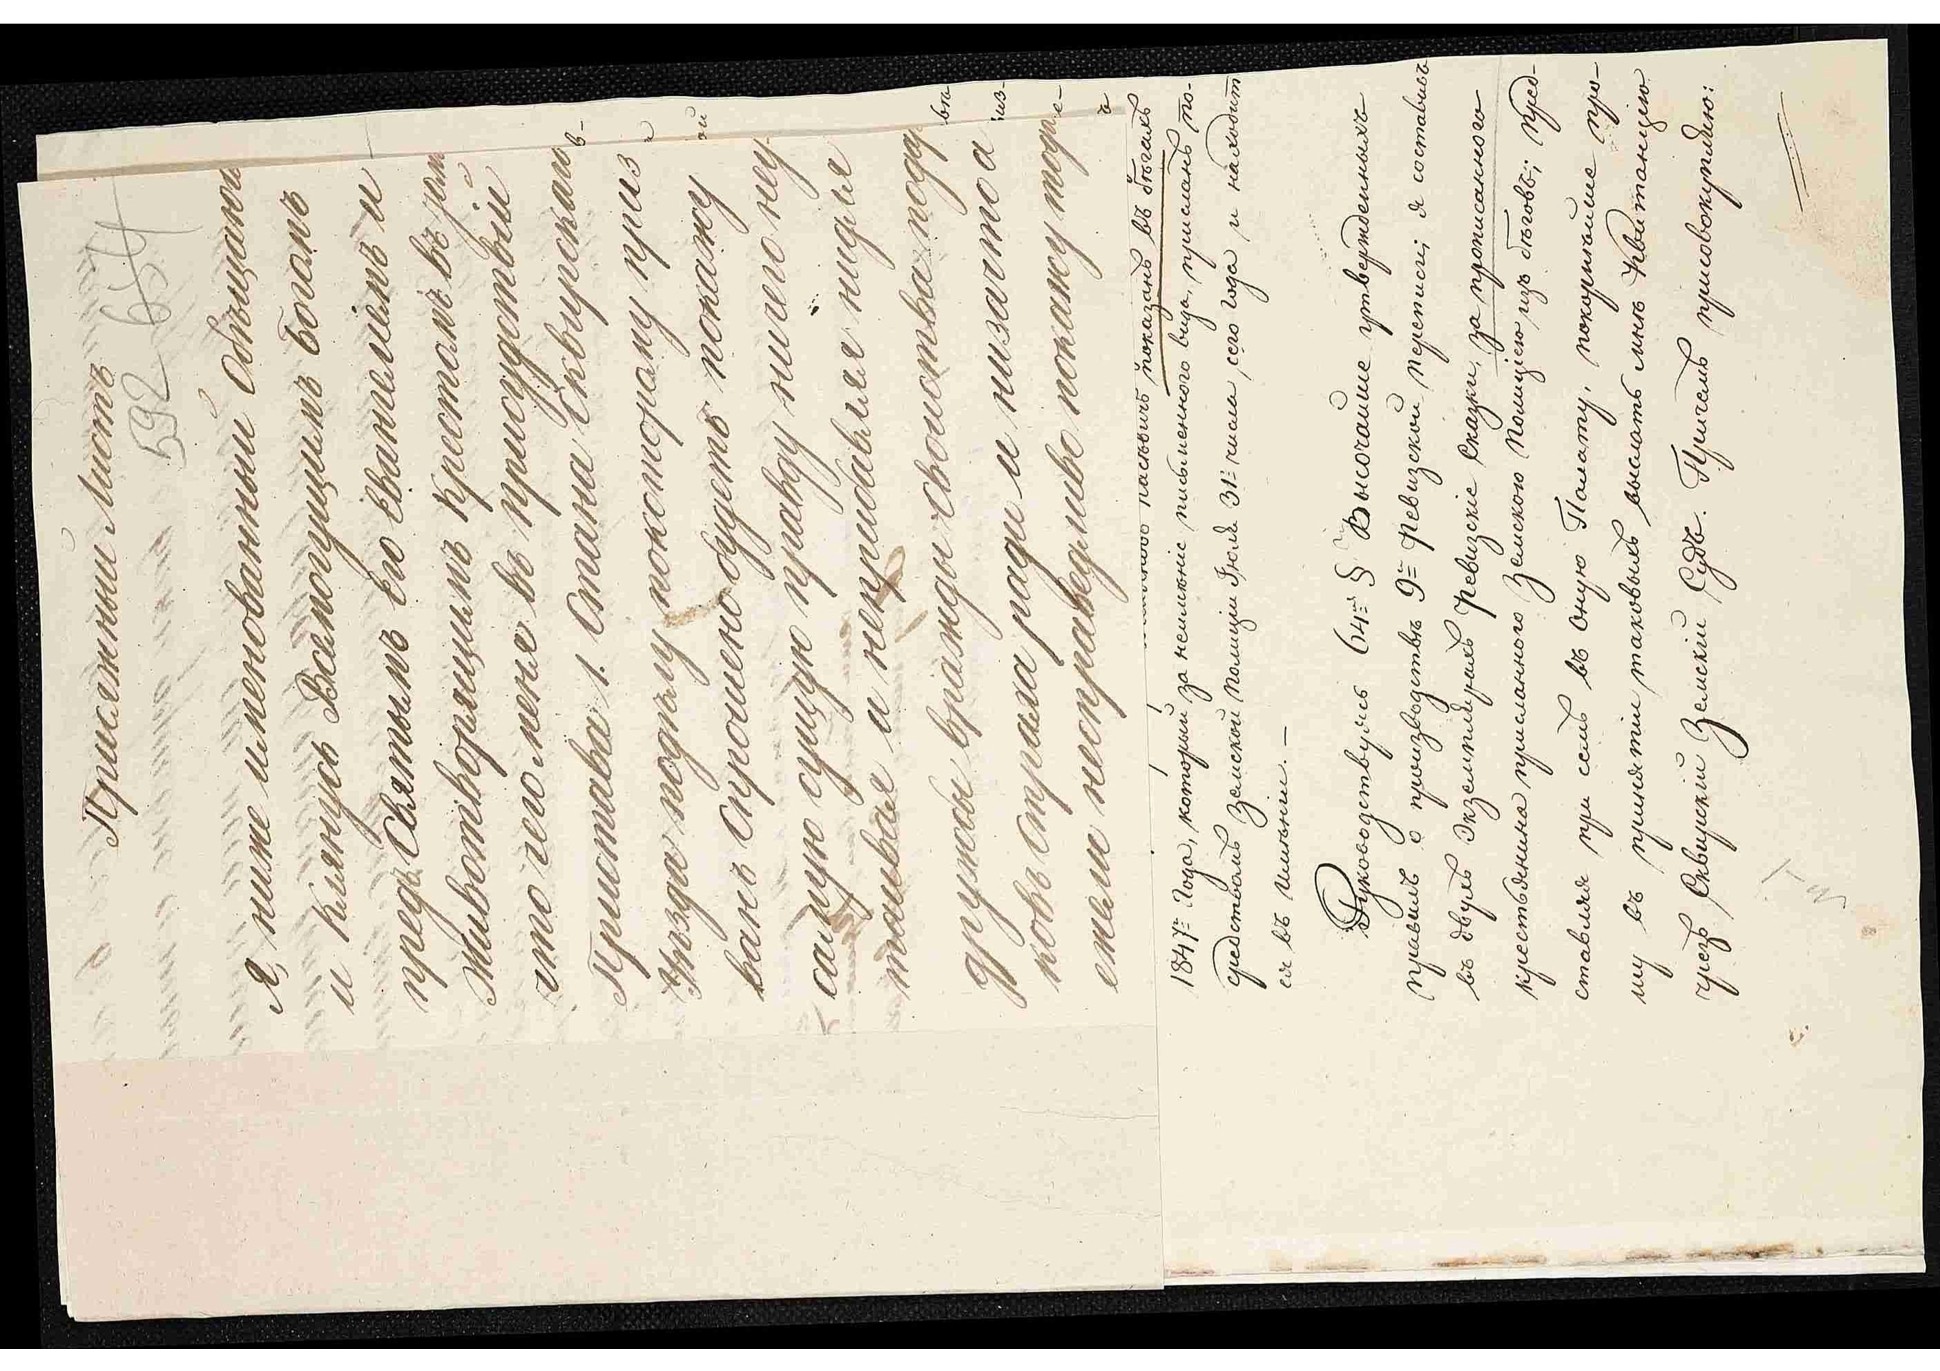 Присяжный Листъ
592 654
Я, ниже именованный Обѣщаюсь
и Клянусь Всемогущимъ Богомъ
предъ Святымъ его Евангелиемъ и
Животворящимъ Крестомъ въ
что чего меня въ присудствіи
Пристава 1. Стана Сквирскаго
Уѣзда подѣлу покоторому приз
ванъ Спрошено будетъ покажу
самую сущую правду ничего неу
таивая и неприбавляя нидля
дружбы вражды свойства подар
ковъ страха ради и низачто а
ежели несправедливо покажу то
показанъ въ бѣгахъ
1847го Года, который за неимѣніе письменного вида, присланъ по-
средствомъ Земской Полиціи Іюля 31го числа сего года и находит
ся въ имѣніи. —
Руководствуясь 64мъ § Высочайше утвержденныхъ
правилъ о производствѣ 9й Ревизской переписи; я составивъ
въ двухъ Экземплярахъ Ревизскіе Сказки, за прописанного
крестьянина присланного Земскою Полиціею изъ бѣговъ; пред-
ставляя при семъ въ Оную Палату, покорнѣйше про-
шу въ принятіи таковыхъ выслать мнѣ Квитанцію
чрезъ Сквирскій Земскій Судъ. Причемъ присовокупляю: